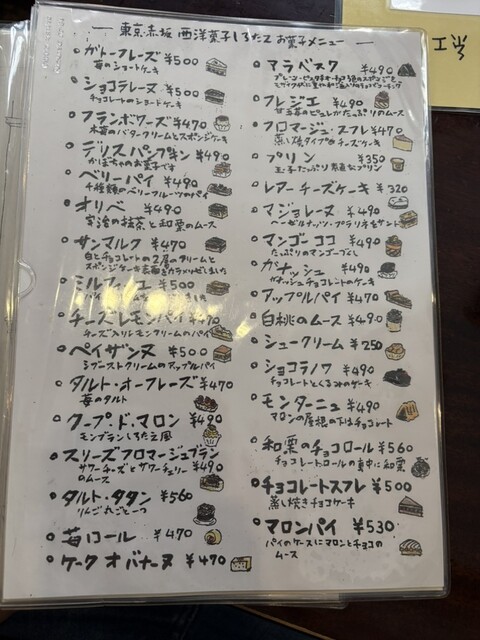 東京・赤坂 西洋菓子しろたえ お菓子メニュー
ガトーフレーズ ¥500
苺のショートケーキ
ショコラレーズ ¥500
チョコレートのショートケーキ
フランボワーズ ¥470
木苺のバタークリームとスポンジケーキ
デリスパンプキン ¥490
かぼちゃのお菓子です
ベリーパイ ¥490
4種類のベリーフルーツのパイ
オリベ ¥490
宇治の抹茶と和栗のムース
サンマルク ¥470
白とチョコレートの2層のクリームと
スポンジケーキ表面をカラメリゼしました
ミルフィユ ¥500
チーズレモンパイ ¥470
チーズ入りレモンクリームのパイ
ペイザンヌ ¥500
シブーストクリームのアップルパイ
タルト・オーフレーズ ¥470
苺のタルト
クープ・ド・マロン ¥490
モンブランしろたえ風
スリーズフロマージュブラン ¥490
サワーチーズとサワーチェリーのムース
タルト・タタン ¥560
りんご丸ごと一つ
苺ロール ¥470
ケークオバナーヌ ¥470
マラベスク ¥490
フレジエ ¥490
フロマージュ・スフレ ¥470
蒸し焼タイプのチーズケーキ
プリン ¥350
玉子たっぷり素直なプリン
レアーチーズケーキ ¥320
マジョレーヌ ¥490
ヘーゼルナッツ・プラリネをサンド
マンゴーココ ¥490
たっぷりのマンゴーづくし
ガナッシュ ¥490
ガナッシュチョコレートのケーキ
アップルパイ ¥470
白桃のムース ¥490
シュークリーム ¥250
ショコラノワ ¥490
チョコレートとくるみのケーキ
モンターニュ ¥490
マロンの屋根の下はチョコレート
和栗のチョコロール ¥560
チョコレートロールの真中に和栗
チョコレートスフレ ¥500
蒸し焼きチョコケーキ
マロンパイ ¥530
パイのケースにマロンとチョコの
ムース